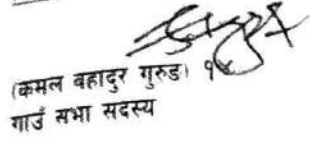 (कमल बहादुर गुरुङ) १४
गाउँ सभा सदस्य